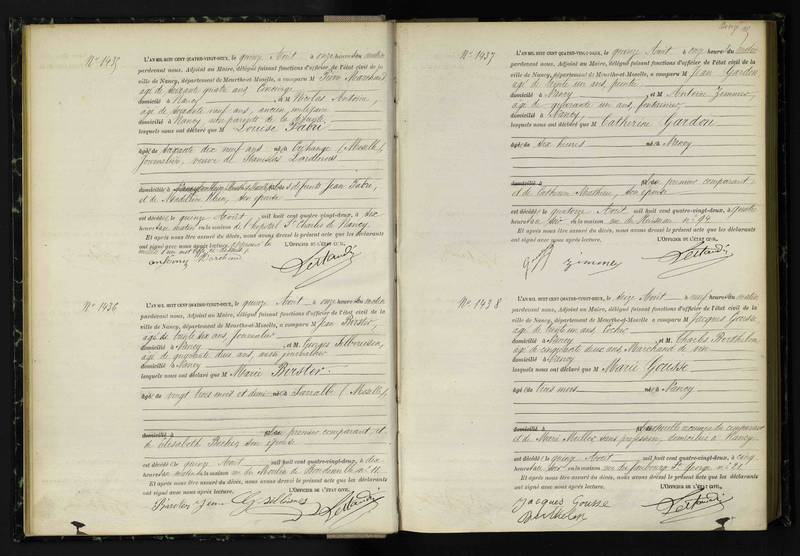 N° 1435
L'AN MIL HUIT CENT QUATRE-VINGT-DEUX, le quinze Août à onze heures du matin
pardevant nous, Adjoint au Maire, délégué faisant fonctions d'officier de l'état civil de la
ville de Nancy, département de Meurthe-et-Moselle, a comparu M Pierre Marchand
âgé de soixante quatre ans Concierge
domicilié à Nancy et M Nicolas Antoine,
âgé de soixante neuf ans, ancien militaire
domicilié à Nancy, non parents de la défunte
lesquels nous ont déclaré que M Louise Fabri
âgée de soixante dix neuf ans née à (Moselle)
Journalière, veuve de Stanislas
domiciliée à Nancy défunts Jean Fabri,
et de Madeleine Klein, son épouse
est décédée le quinze Août, mil huit cent quatre-vingt-deux, à dix
heures du matin en la maison de l'hôpital St Charles de Nancy.
Et après nous être assuré du décès, nous avons dressé le présent acte que les déclarants
ont signé avec nous après lecture.
L'OFFICIER DE L'ÉTAT CIVIL,
Antoine Marchand
N° 1436
L'AN MIL HUIT CENT QUATRE-VINGT-DEUX, le quinze Août à onze heures du matin
pardevant nous, Adjoint au Maire, délégué faisant fonctions d'officier de l'état civil de la
ville de Nancy, département de Meurthe-et-Moselle, a comparu M Jean Birster,
âgé de trente six ans Journalier
domicilié à Nancy et M Georges
âgé de quarante deux ans, aussi journalier
domicilié à Nancy
lesquels nous ont déclaré que M Marie Birster
âgée de vingt trois mois et demi née à Sarralbe (Moselle),
domicilié à premier comparant et
de Elisabeth son épouse
est décédée le quinze Août mil huit cent quatre-vingt-deux, à dix
heures du matin en la maison rue du Moulin de Boudonville n° 11
Et après nous être assuré du décès, nous avons dressé le présent acte que les déclarants
ont signé avec nous après lecture.
L'OFFICIER DE L'ÉTAT CIVIL,
N° 1437
L'AN MIL HUIT CENT QUATRE-VINGT-DEUX, le quinze Août à onze heures du matin
pardevant nous, Adjoint au Maire, délégué faisant fonctions d'officier de l'état civil de la
ville de Nancy, département de Meurthe-et-Moselle, a comparu M Jean Gardon
âgé de trente un ans, peintre
domicilié à Nancy et M Antoine Zimmer,
âgé de quarante un ans, fontainier
domicilié à Nancy,
lesquels nous ont déclaré que M Catherine Gardon
âgée de dix heures née à Nancy
domicilié à premier comparant
et de Catherine Mathieu, son épouse
est décédée le quatorze Août mil huit cent quatre-vingt-deux, à quatre
heures du soir en la maison rue du Ruisseau n° 94
Et après nous être assuré du décès, nous avons dressé le présent acte que les déclarants
ont signé avec nous après lecture.
L'OFFICIER DE L'ÉTAT CIVIL,
Zimmer
N° 1438
L'AN MIL HUIT CENT QUATRE-VINGT-DEUX, le seize Août à neuf heures du matin
pardevant nous, Adjoint au Maire, délégué faisant fonctions d'officier de l'état civil de la
ville de Nancy, département de Meurthe-et-Moselle, a comparu M Jacques Gousse
âgé de trente un ans, Cocher
domicilié à Nancy et M Charles Berthelon
âgé de cinquante deux ans, Marchand de vin
domicilié à Nancy
lesquels nous ont déclaré que M Marie Gousse
âgée de trois mois née à Nancy
domicilié à comparant
et de Marie Muller sans profession, domiciliée à Nancy
est décédée le quinze Août mil huit cent quatre-vingt-deux, à cinq
heures du soir en la maison rue du faubourg St George n° 22
Et après nous être assuré du décès, nous avons dressé le présent acte que les déclarants
ont signé avec nous après lecture.
L'OFFICIER DE L'ÉTAT CIVIL,
Jacques Gousse
Berthelon